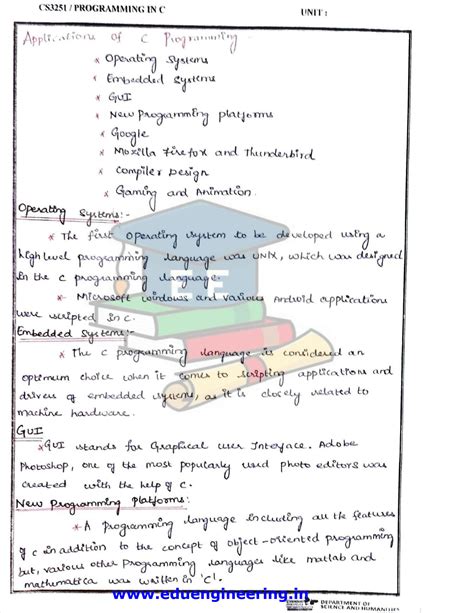 CS3251 / PROGRAMMING IN C UNIT :
Applications of C Programming
* Operating Systems
* Embedded Systems
* GUI
* New Programming platforms
* Google
* Mozilla Firefox and Thunderbird
* Compiler Design
* Gaming and Animation.
Operating Systems:-
* The first operating system to be developed using a
high level programming language was UNIX, which was designed
in the C programming language.
* Microsoft windows and various Android applications
were scripted in C.
Embedded Systems:-
* The C programming language is considered an
optimum choice when it comes to scripting applications and
drivers of embedded systems, as it is closely related to
machine hardware.
GUI
* GUI stands for Graphical User Interface. Adobe
Photoshop, one of the most popularly used photo editors was
created with the help of C.
New Programming Platforms:
* A Programming language including all the features
of C in addition to the concept of object-oriented programming
but, various other Programming languages like matlab and
mathematica was written in 'C'.
www.eduengineering.in
DEPARTMENT OF
SCIENCE AND HUMANITIES